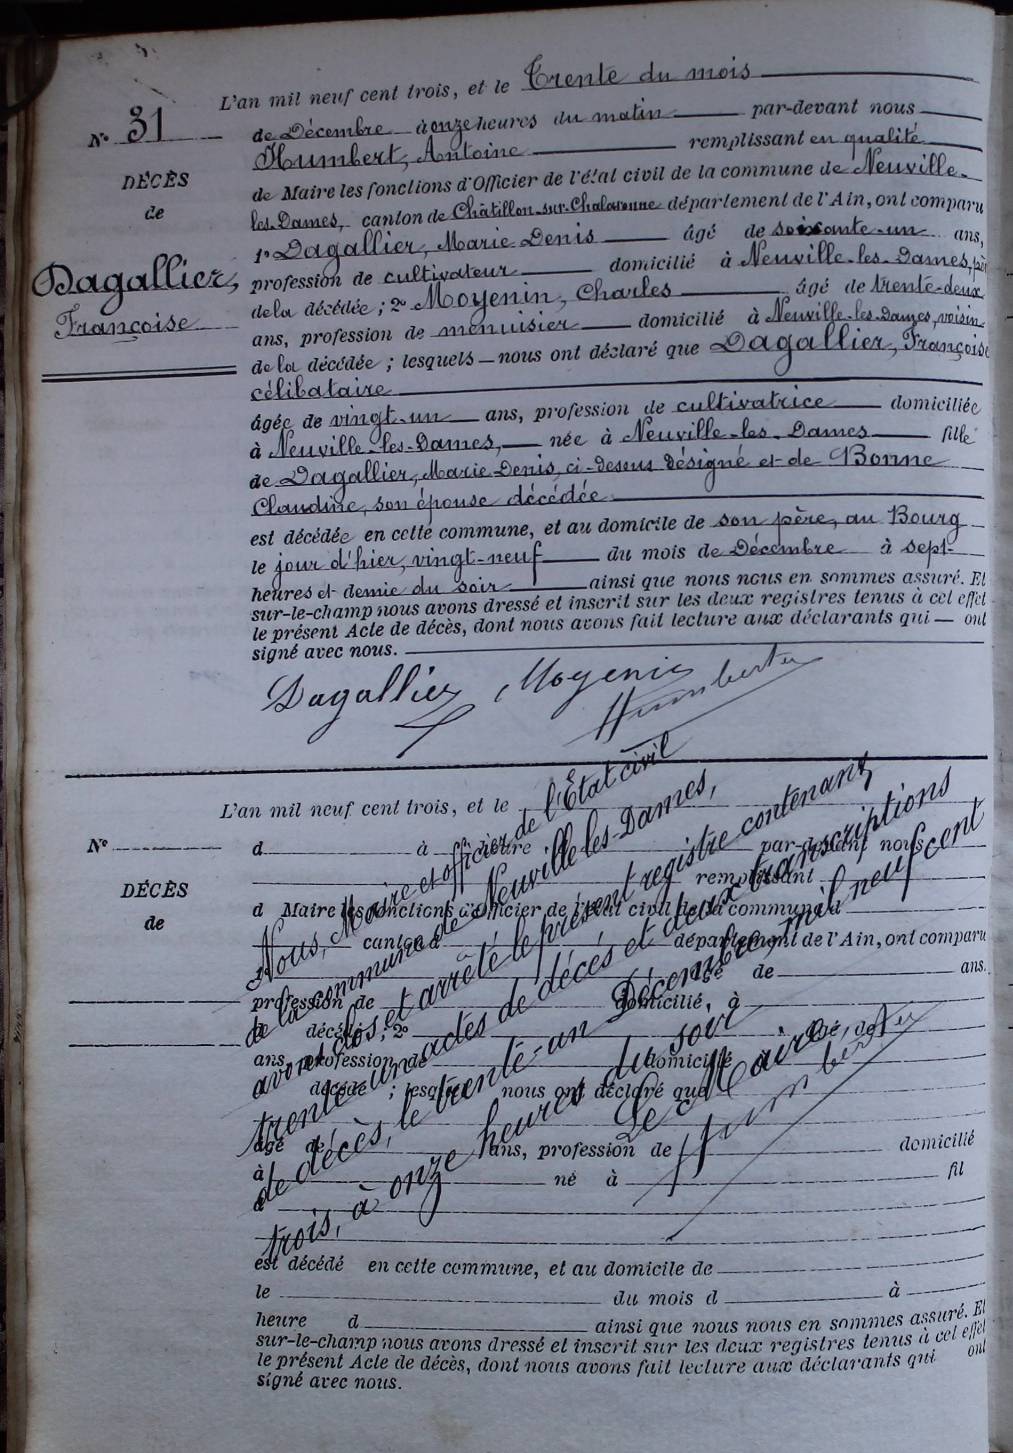 L'an mil neuf cent trois, et le Trente du mois
N° 31
de Décembre à onze heures du matin par-devant nous
Humbert, Antoine remplissant en qualité
DÉCÈS
de Maire les fonctions d'Officier de l'état civil de la commune de Neuville-
de
les-Dames, canton de Châtillon-sur-Chalaronne département de l'Ain, ont comparu
1° Dagallier, Marie Denis âgé de soixante-un ans,
Dagallier,
profession de cultivateur domicilié à Neuville-les-Dames, père
Françoise
de la décédée ; 2° Moyenin, Charles âgé de trente-deux
ans, profession de menuisier domicilié à Neuville-les-Dames, voisin
de la décédée ; lesquels nous ont déclaré que Dagallier, Françoise
célibataire
âgée de vingt-un ans, profession de cultivatrice domiciliée
à Neuville-les-Dames, née à Neuville-les-Dames fille
de Dagallier, Marie Denis, ci-dessus désigné et de Bonne
Claudine, son épouse décédée
est décédée en cette commune, et au domicile de son père, au Bourg
le jour d'hier, vingt-neuf du mois de Décembre à sept
heures et demie du soir ainsi que nous nous en sommes assuré. Et
sur-le-champ nous avons dressé et inscrit sur les deux registres tenus à cet effet
le présent Acte de décès, dont nous avons fait lecture aux déclarants qui ont
signé avec nous.
Dagallier Moyenin Humbert
L'an mil neuf cent trois, et le
N°
d à heure par-devant nous
remplissant
DÉCÈS
d Maire les fonctions d'Officier de l'état civil de la commune d
de
canton d département de l'Ain, ont comparu
1° âgé de ans.
profession de domicilié, à
d décédé ; 2° âgé de
ans, profession de domicilié
décédé ; lesquels nous ont déclaré que
âgé de ans, profession de domicilié
à né à fil
d
est décédé en cette commune, et au domicile de
le du mois d à
heure d ainsi que nous nous en sommes assuré. Et
sur-le-champ nous avons dressé et inscrit sur les deux registres tenus à cet effet
le présent Acte de décès, dont nous avons fait lecture aux déclarants qui ont
signé avec nous.
Nous, Maire et officier de l'État civil
de la commune de Neuville-les-Dames,
avons clos et arrêté le présent registre contenant
trente-un actes de décès et deux transcriptions
de décès, le trente-un Décembre, mil neuf cent
trois, à onze heures du soir
Le Maire,
Humbert